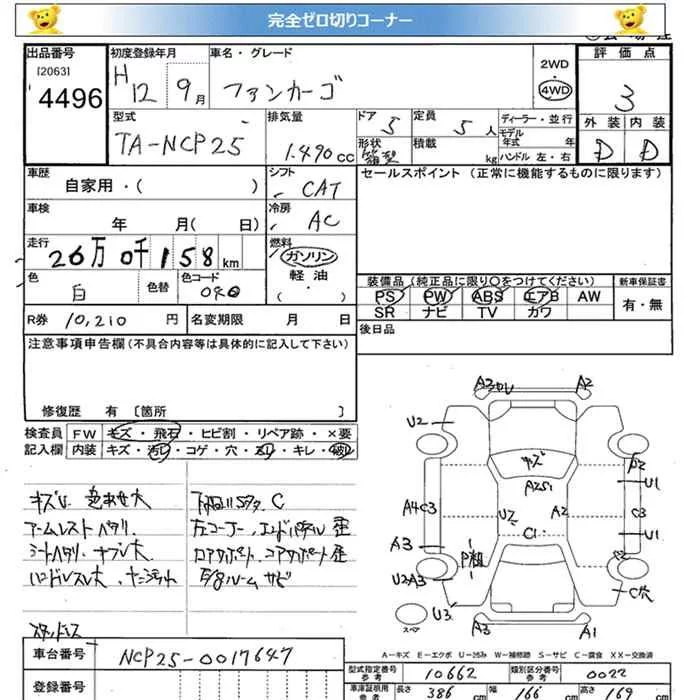 完全ゼロ切りコーナー
出品番号
[2063]
4496
初度登録年月
H12 9月
車名・グレード
ファンカーゴ
2WD
4WD
評価点
3
外装 内装
D D
型式
TA-NCP25
排気量
1.490cc
ドア 5
形状 箱型
定員 5人
積載 kg
ディーラー・並行
モデル年式 年
ハンドル 左・右
車歴
自家用・( )
シフト
CAT
車検
年 月( 日)
冷房
AC
走行
26万0千158km
燃料
ガソリン
軽油
( ・ )
色
白
色替
色コード
040
セールスポイント(正常に機能するものに限ります)
装備品(純正品に限り〇をつけてください)
PS PW ABS エアB AW
SR ナビ TV カワ
新車保証書
有・無
R券 10,210 円
名変期限 月 日
後日品
注意事項申告欄(不具合内容等は具体的に記入して下さい)
修復歴 有 [箇所 ]
検査員記入欄
FW キズ・飛石・ヒビ割・リペア跡・×要
内装 キズ・汚レ・コゲ・穴・
・キレ・
キズU 色あせ大
アームレストヘタリ
シートヘタリ
ハンドルスレ大
C
左コーナー、エンドパネル歪
コアサポート
ルームサビ
A3 A2
U2
キズ
A2
U1
A4C3
U2
A2
C1
C3
U1
A3
U2A3
C穴
U3
スペア
A3
A1
A-キズ E-エクボ U-凹み W-補修跡 S-サビ C-腐食 XX-交換済
車台番号
NCP25-0017647
登録番号
型式指定番号 参考
10662
類別区分番号 参考
0022
車庫証明用 参考
長さ 386 cm
幅 166 cm
高さ 169 cm